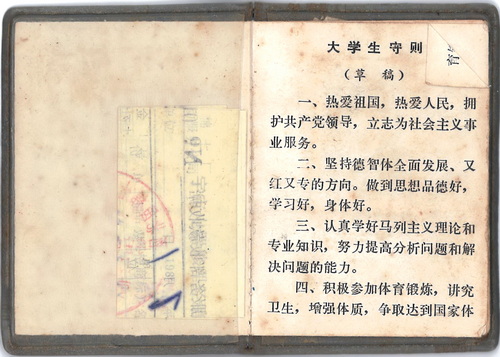 大学生守则
（草稿）
一、热爱祖国，热爱人民，拥
护共产党领导，立志为社会主义事
业服务。
二、坚持德智体全面发展、又
红又专的方向。做到思想品德好，
学习好，身体好。
三、认真学好马列主义理论和
专业知识，努力提高分析问题和解
决问题的能力。
四、积极参加体育锻炼，讲究
卫生，增强体质，争取达到国家体